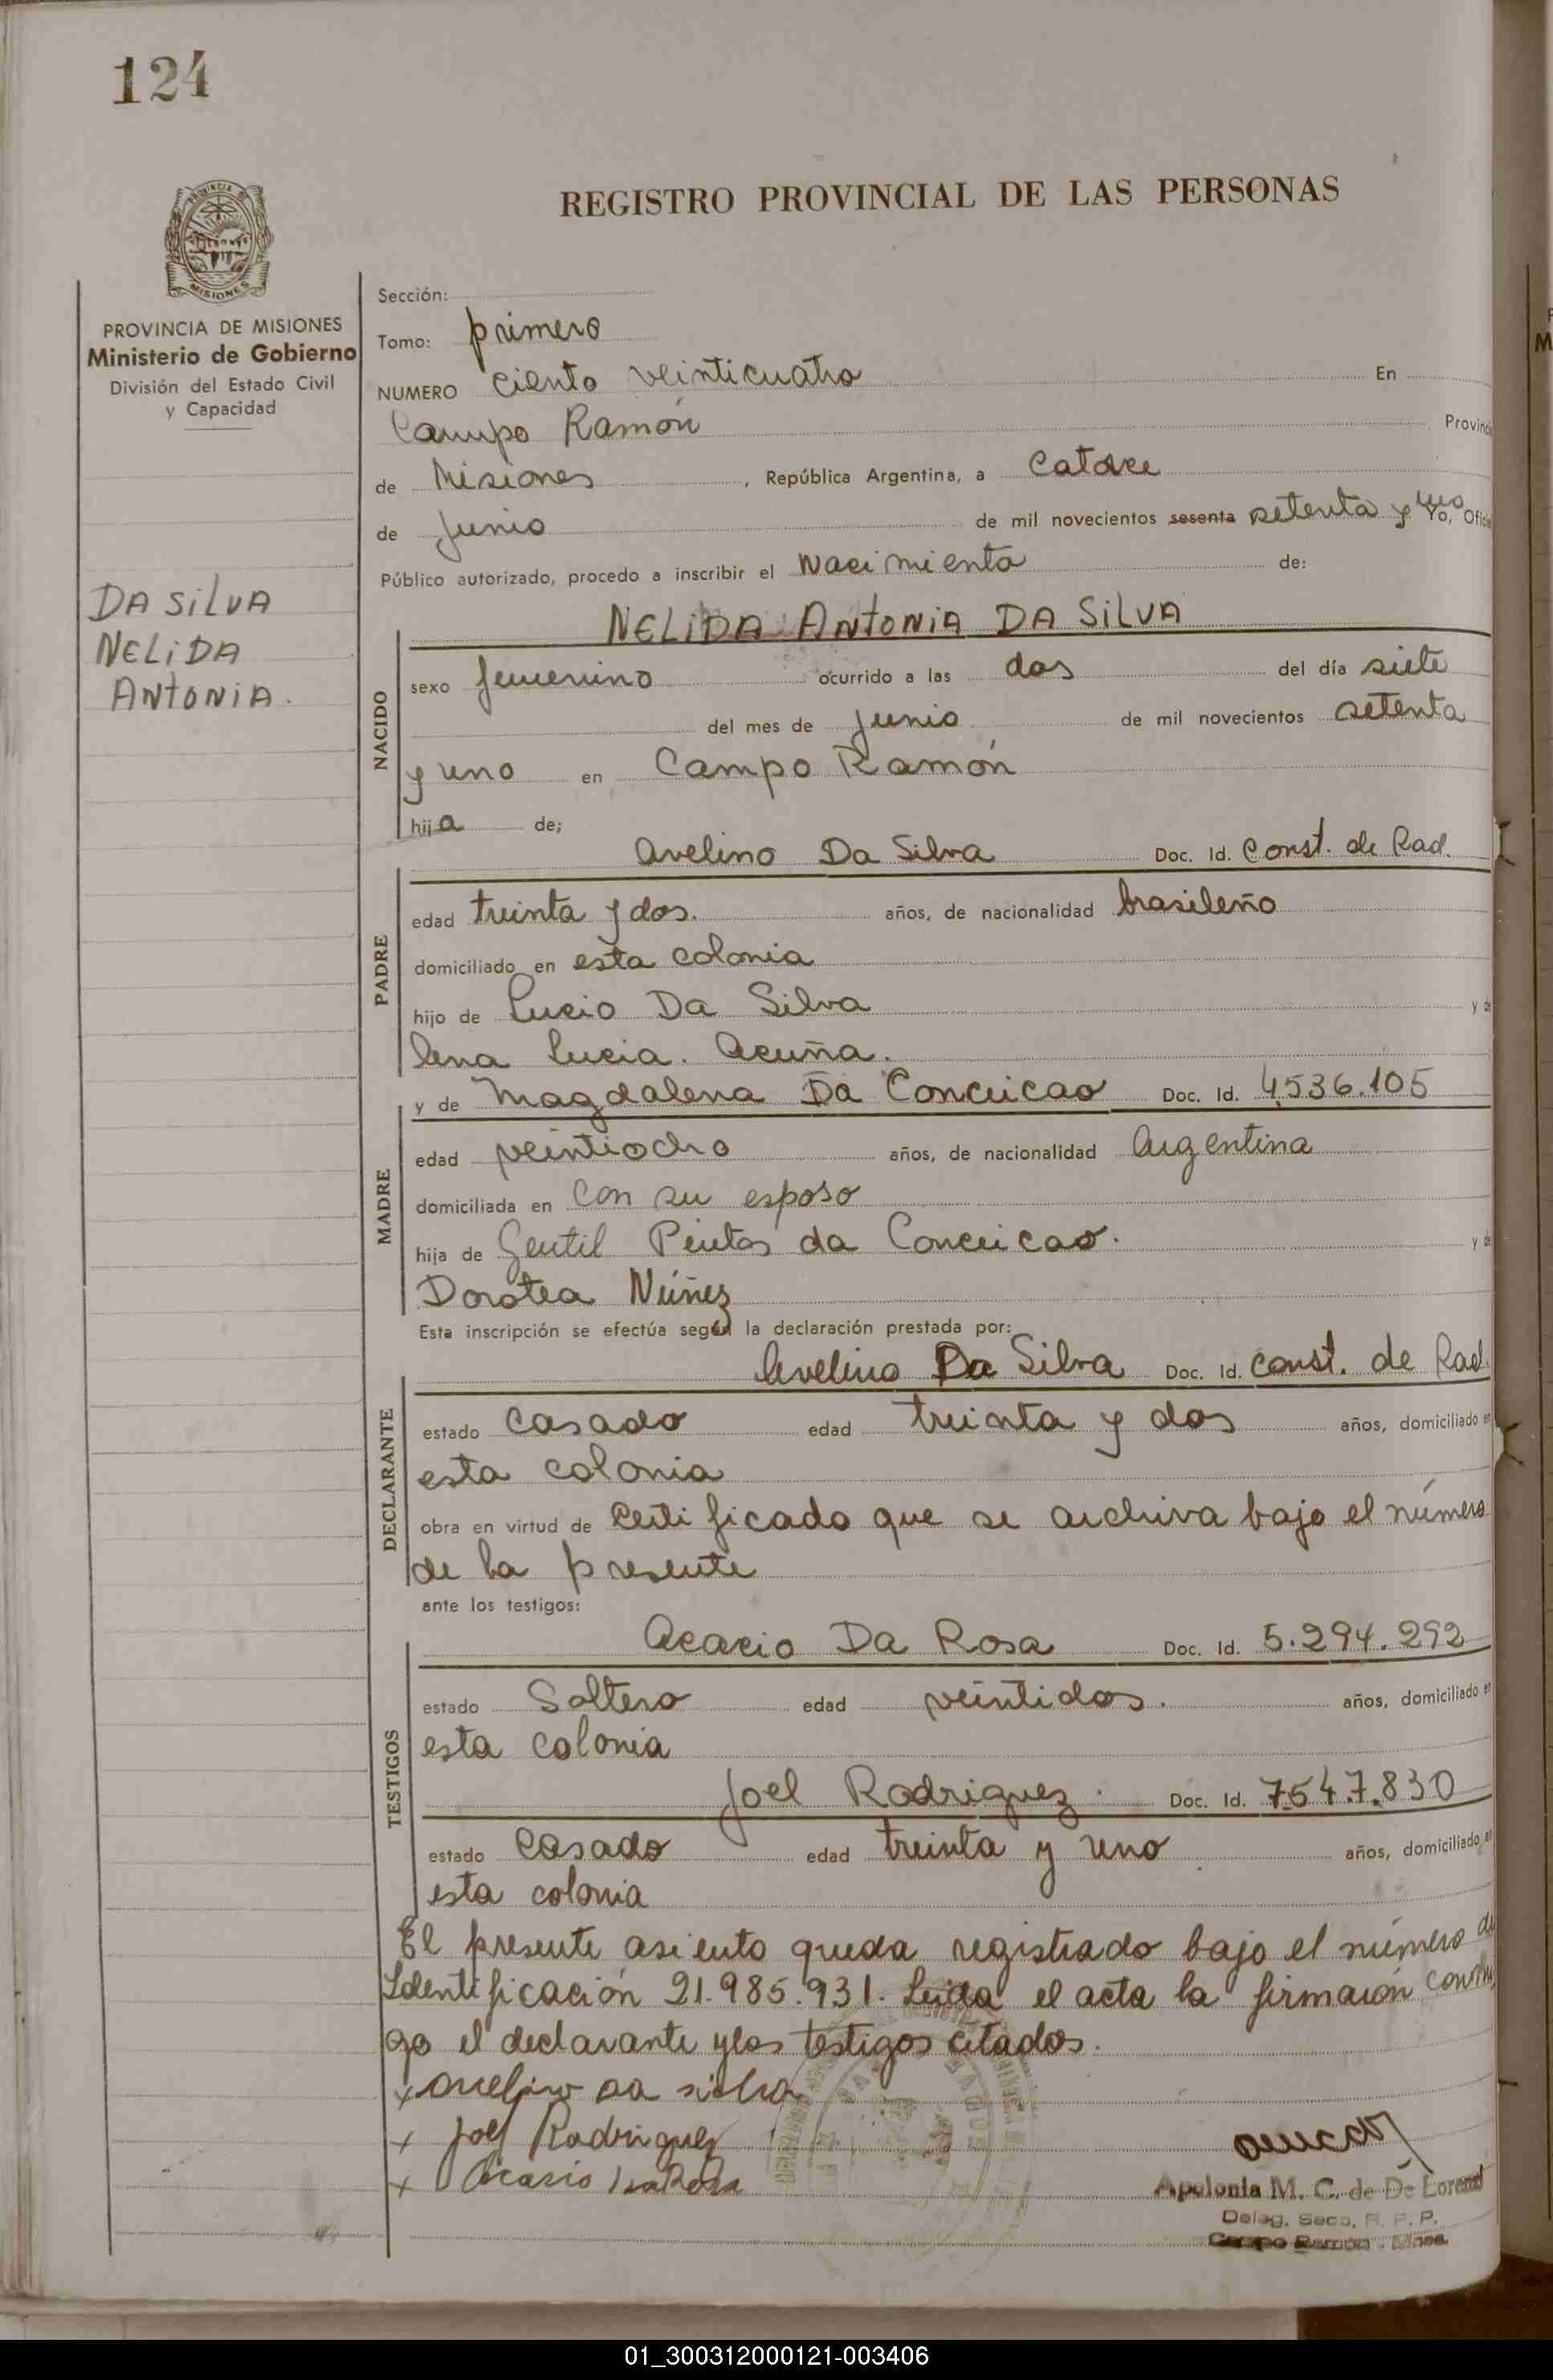 124
REGISTRO PROVINCIAL DE LAS PERSONAS
PROVINCIA DE MISIONES
Ministerio de Gobierno
División del Estado Civil
y Capacidad
DA SILVA
NELIDA
ANTONIA.
Sección:
Tomo: primero
NUMERO Ciento veinticuatro En
Campo Ramón Provinci
de Misiones, República Argentina, a Catorce
de Junio de mil novecientos sesenta setenta y uno Yo, Oficia
Público autorizado, procedo a inscribir el Nacimiento de:
NELIDA ANTONIA DA SILVA
NACIDO
sexo femenino ocurrido a las dos del día siete
del mes de junio de mil novecientos setenta
y uno en Campo Ramón
hija de;
Avelino Da Silva Doc. Id. Const. de Rad.
PADRE
edad treinta y dos. años, de nacionalidad brasileño
domiciliado en esta colonia
hijo de Lucio Da Silva y de
Lucia. Acuña.
MADRE
y de Magdalena Da Conceicao Doc. Id. 4.536.105
edad veintiocho años, de nacionalidad Argentina
domiciliada en con su esposo
hija de Gentil Pintos da Conceicao. y de
Dorotea Núñez
Esta inscripción se efectúa según la declaración prestada por:
Avelino Da Silva Doc. Id. Const. de Rad.
DECLARANTE
estado Casado edad treinta y dos años, domiciliado en
esta colonia
obra en virtud de Certificado que se archiva bajo el número
de la presente
ante los testigos:
TESTIGOS
Acacio Da Rosa Doc. Id. 5.294.292
estado Soltero edad veintidos. años, domiciliado en
esta colonia
Joel Rodriguez. Doc. Id. 7.547.830
estado Casado edad treinta y uno años, domiciliado en
esta colonia
El presente asiento queda registrado bajo el número de
Identificación 21.985.931. Leida el acta la firmaron conmi
go el declarante y los testigos citados.
x avelino da silva
x Joel Rodriguez
x Acasio Da Rosa
Apolonia M. C. de De Lorenzi
Deleg. Secc. R. P. P.
Campo Ramón - Mnes.
01_300312000121-003406